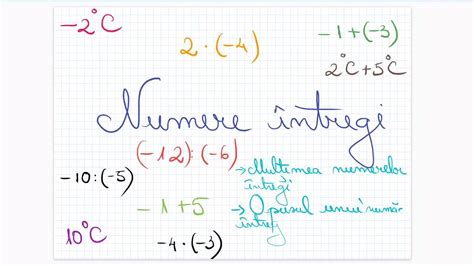 -2°C
2 · (-4)
-1+(-3)
2°C+5°C
Numere întregi
(-12):(-6)
→Mulțimea numerelor
întregi
-10:(-5)
-1+5
→Opusul unui numă-
întreg
10°C
-4·(-3)